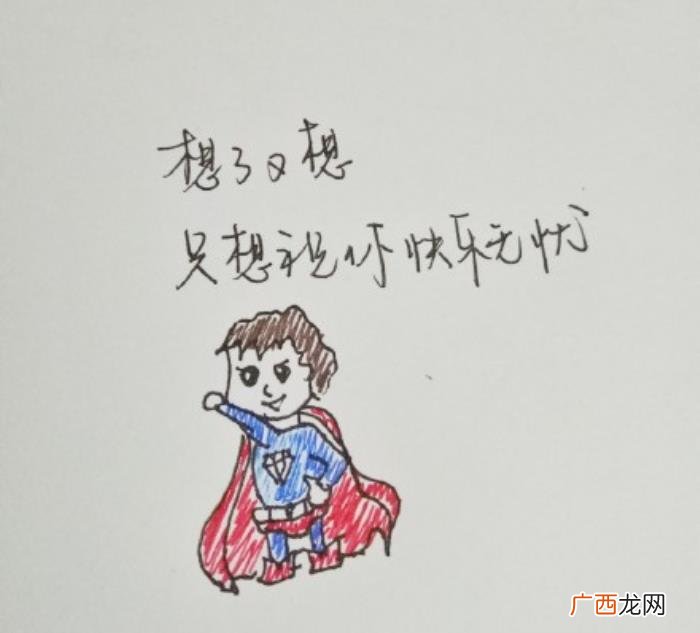 想了又想
只想祝你快乐无忧
广西龙网